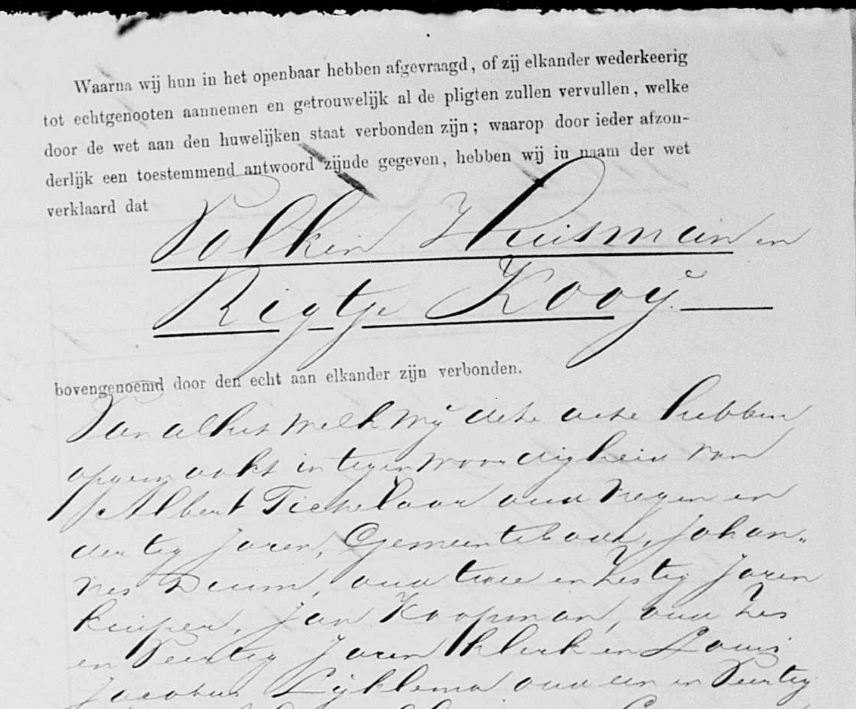 Waarna wij hun in het openbaar hebben afgevraagd, of zij elkander wederkeerig
tot echtgenooten aannemen en getrouwelijk al de pligten zullen vervullen, welke
door de wet aan den huwelijken staat verbonden zijn; waarop door ieder afzon-
derlijk een toestemmend antwoord zijnde gegeven, hebben wij in naam der wet
verklaard dat
Volkein Huisman en
Rigtje Kooÿ
bovengenoemd door den echt aan elkander zijn verbonden.
Van alhet welk wÿ deze acte hebben
opgemaakt in tegenwoordigheid van
Albert Tichelaar oud negen en
dertig Jaren, Gemeentebode, Johan„
nes Duum, oud twee en Zestig Jaren
kuiper, Jan Koopman, oud Zes
en Veertig Jaren klerk en Louis
Jacobus Lÿklema oud een en Veertig